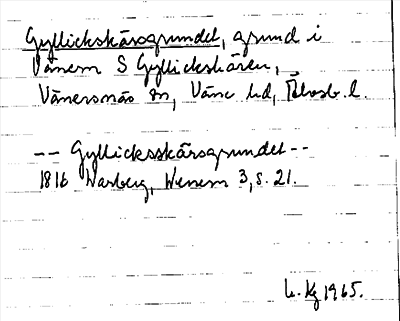 Gyllickskärsgrundet, grund i
Vänern S Gyllickskären,
Vänersnäs sn, Väne hd, Älvsb. l.
-- Gyllicksskärsgrundet --
1816 Warberg, Wenern 3, s. 21.
1965.